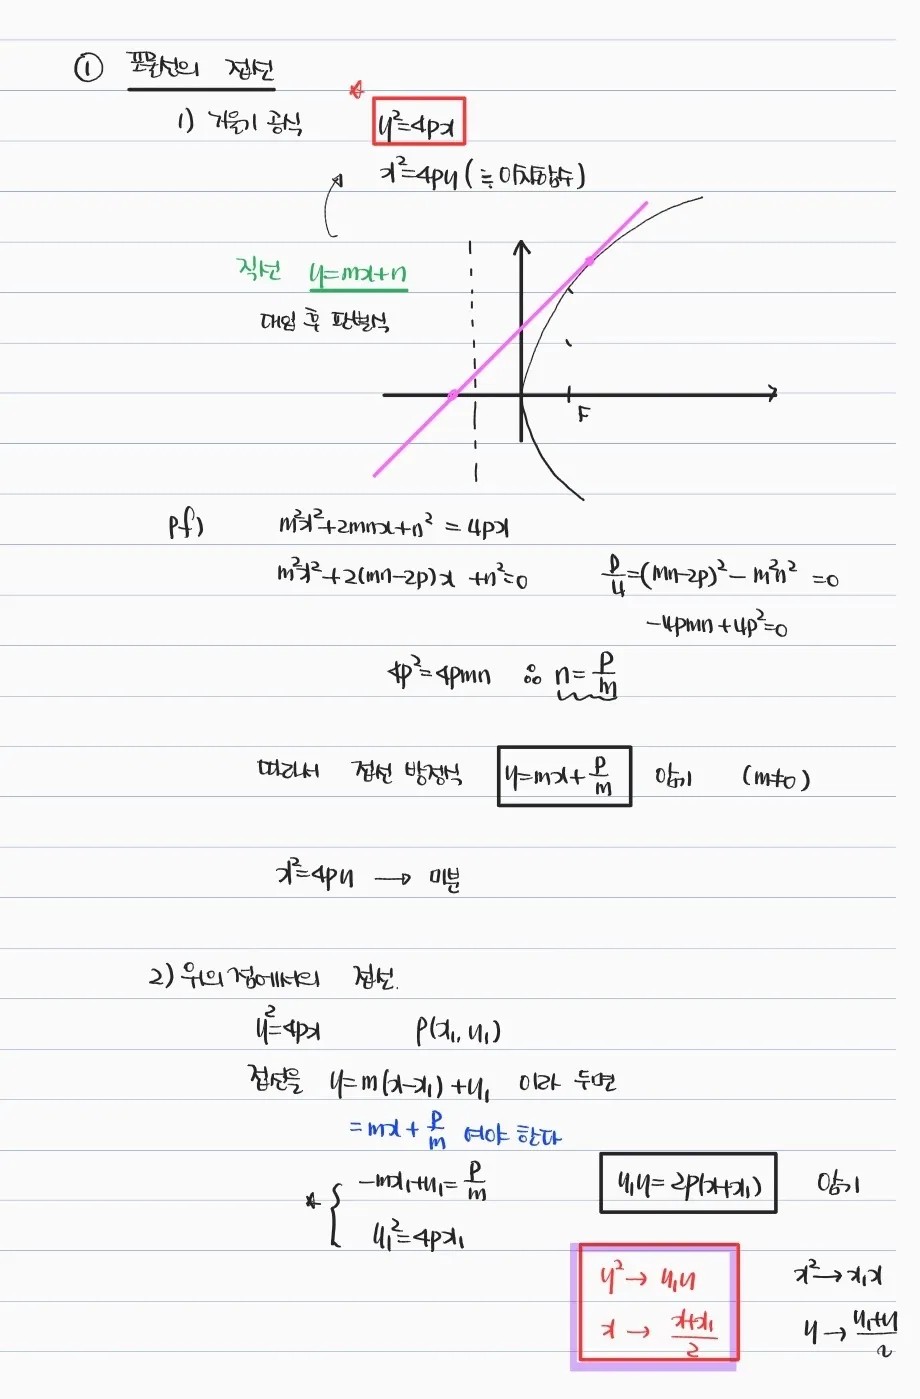 ① 포물선의 접선
1) 기울기 공식 y²=4px
x²=4py (≒ 이차함수)
직선 y=mx+n
대입 후 판별식
F
pf) m²x²+2mnx+n² = 4px
m²x²+2(mn-2p)x +n²=0 D/4=(mn-2p)²-m²n² =0
-4pmn+4p²=0
4p²=4pmn ∴ n=p/m
따라서 접선 방정식 y=mx+p/m 암기 (m≠0)
x²=4py → 미분
2) 위의 점에서의 접선.
y²=4px P(x₁, y₁)
접선을 y=m(x-x₁)+y₁ 이라 두면
=mx+p/m 여야 한다
-mx₁+y₁=p/m y₁y=2p(x+x₁) 암기
y₁²=4px₁
y²→ y₁y x²→x₁x
x → (x+x₁)/2 y→(y₁+y)/2